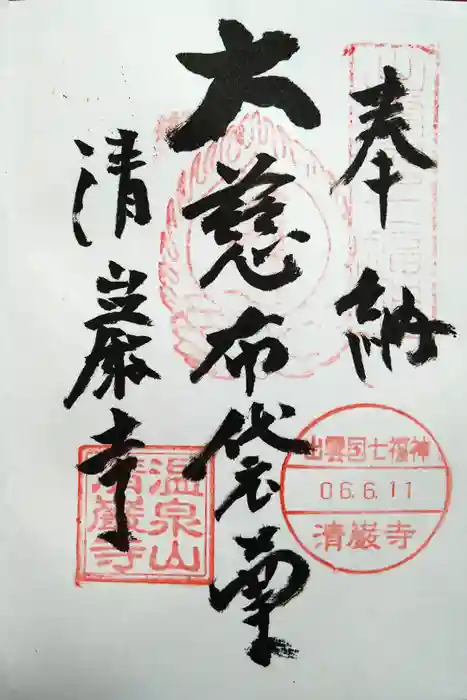 奉納
大慈布袋尊
清巖寺
出雲国七福神
06.6.11
清巌寺
温泉山
清巖寺